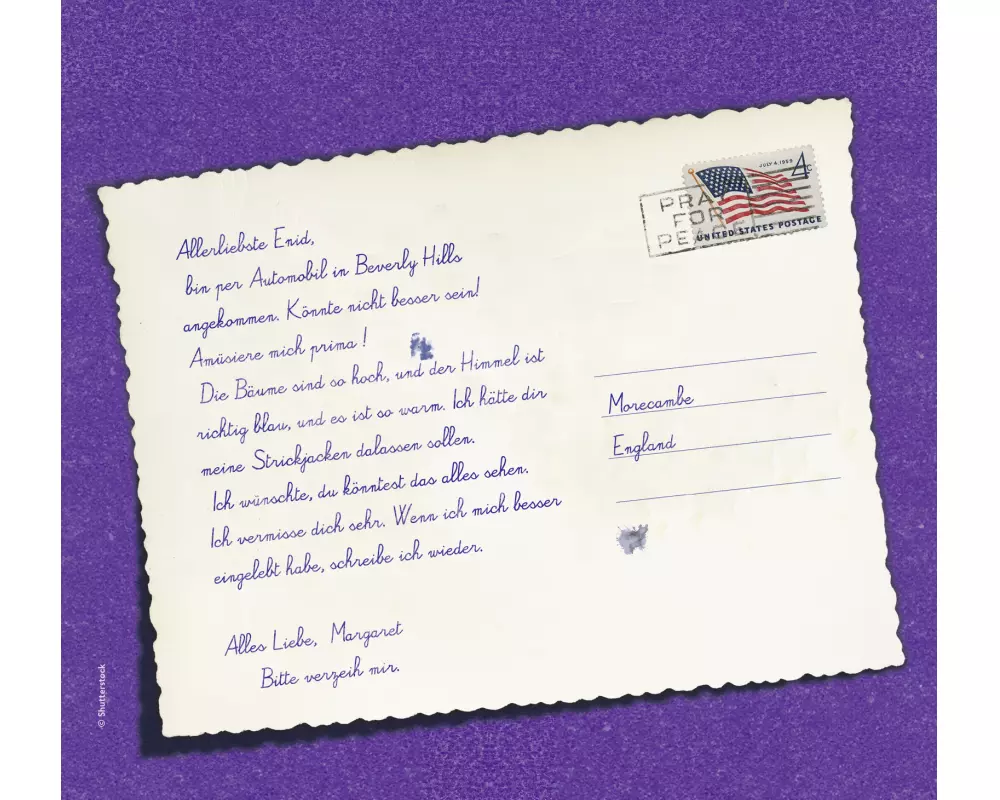 JULY 4, 1959
4c
PRAY
FOR
PEACE
UNITED STATES POSTAGE
Allerliebste Enid,
bin per Automobil in Beverly Hills
angekommen. Könnte nicht besser sein!
Amüsiere mich prima!
Die Bäume sind so hoch, und der Himmel ist
richtig blau, und es ist so warm. Ich hätte dir
meine Strickjacken dalassen sollen.
Ich wünschte, du könntest das alles sehen.
Ich vermisse dich sehr. Wenn ich mich besser
eingelebt habe, schreibe ich wieder.
Alles Liebe, Margaret
Bitte verzeih mir.
Morecambe
England
© Shutterstock